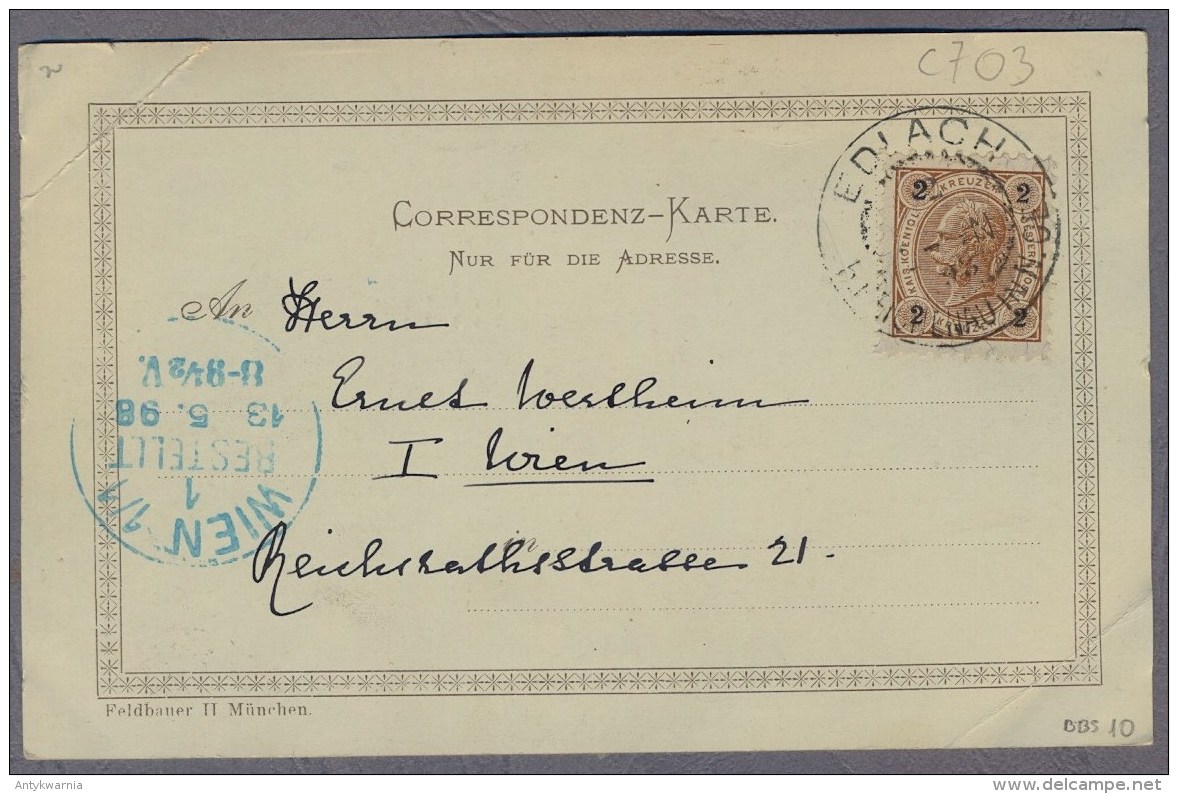 C703
EDLACH
2 KREUZER 2
2 2
CORRESPONDENZ-KARTE.
NUR FÜR DIE ADRESSE.
An Herrn
Ernst Wertheim
I Wien
Reichsrathsstrasse 21.
WIEN 1/1
1
BESTELLT
13. 5. 98
8-9½V.
Feldbauer II München.
BBS 10
Antykwarnia
delcampe.net